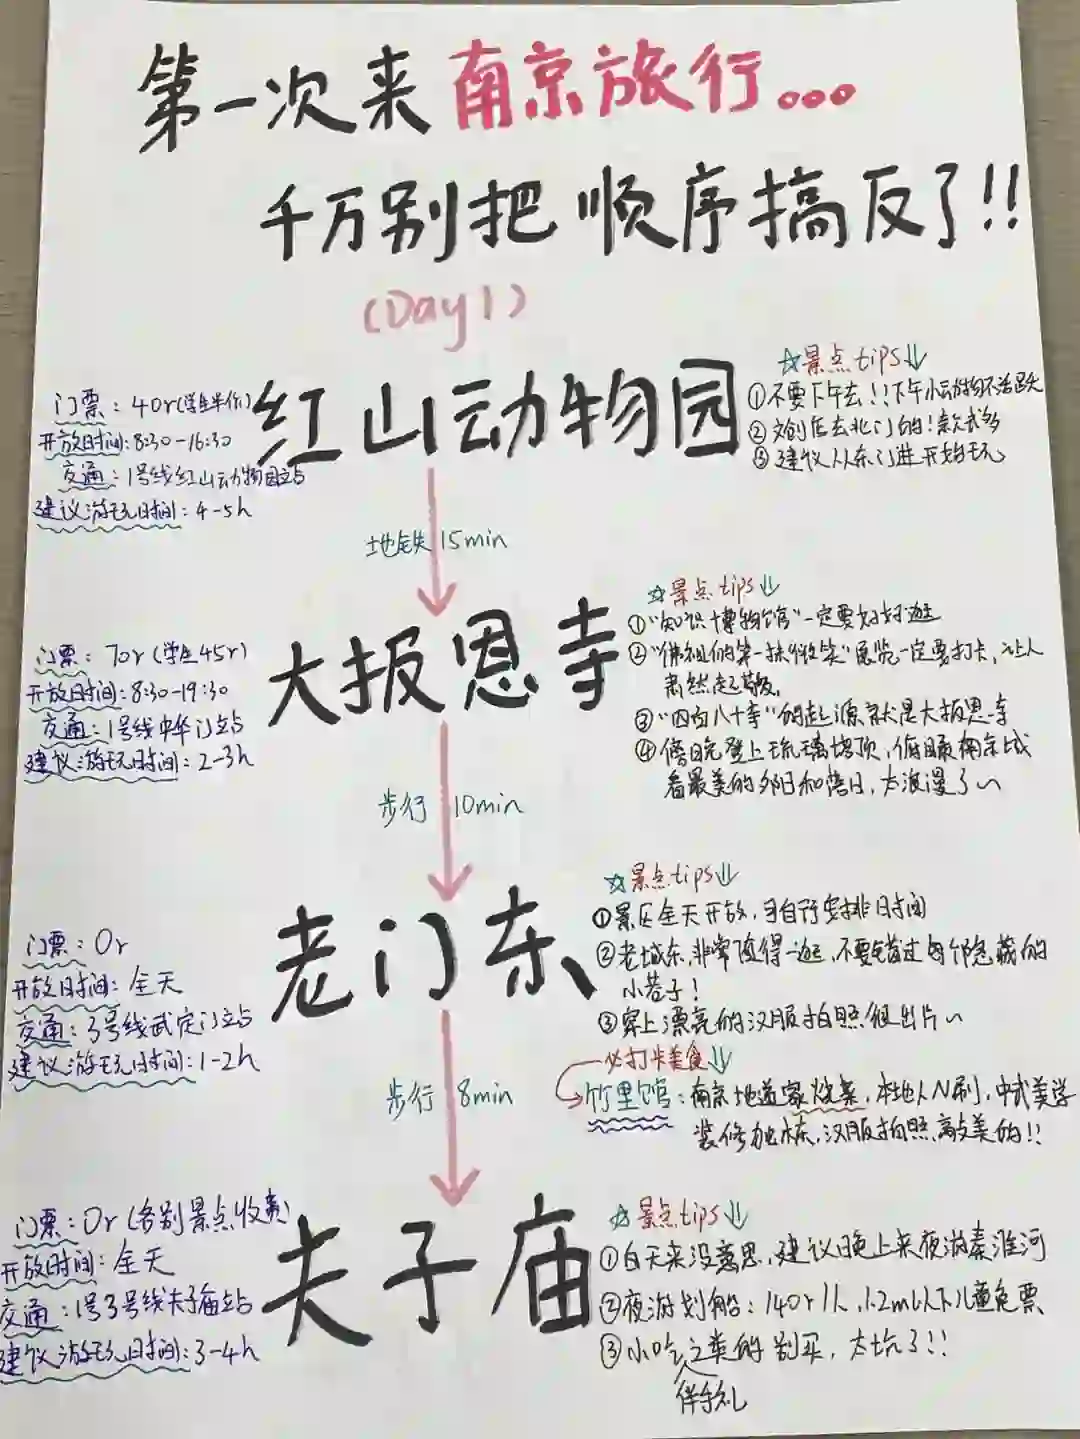 第一次来南京旅行...
千万别把顺序搞反了!!
(Day1)
门票：40r(学生半价)
开放时间：8:30-16:30
交通：1号线红山动物园站
建议游玩时间：4-5h
红山动物园
☆景点tips↓
①不要下午去!!下午小动物不活跃
②文创店去北门的!款式多
③建议从东门进开始玩
地铁 15min
门票：70r(学生45r)
开放时间：8:30-19:30
交通：1号线中华门站
建议游玩时间：2-3h
大报恩寺
☆景点tips↓
①"知识博物馆"一定要好好逛
②"佛祖们的第一抹微笑"展览一定要打卡，让人
肃然起敬。
③"四百八十寺"的起源就是大报恩寺
④傍晚登上琉璃塔顶，俯瞰南京城
看最美的夕阳和落日，太浪漫了～
步行 10min
门票：0r
开放时间：全天
交通：3号线武定门站
建议游玩时间：1-2h
老门东
☆景点tips↓
①景区全天开放，可自行安排时间
②老城东，非常值得一逛，不要错过每个隐藏的
小巷子!
③穿上漂亮的汉服拍照很出片～
必打卡美食↓
竹里馆：南京地道家烧菜，本地人N刷，中式美学
装修加持，汉服拍照敲美的!!
步行 8min
门票：0r(各别景点收费)
开放时间：全天
交通：1号3号线夫子庙站
建议游玩时间：3-4h
夫子庙
☆景点tips↓
①白天来没意思，建议晚上来夜游秦淮河
②夜游划船：140r/人，1.2m以下儿童免票
③小吃之类的别买，太坑了!!
伴手礼